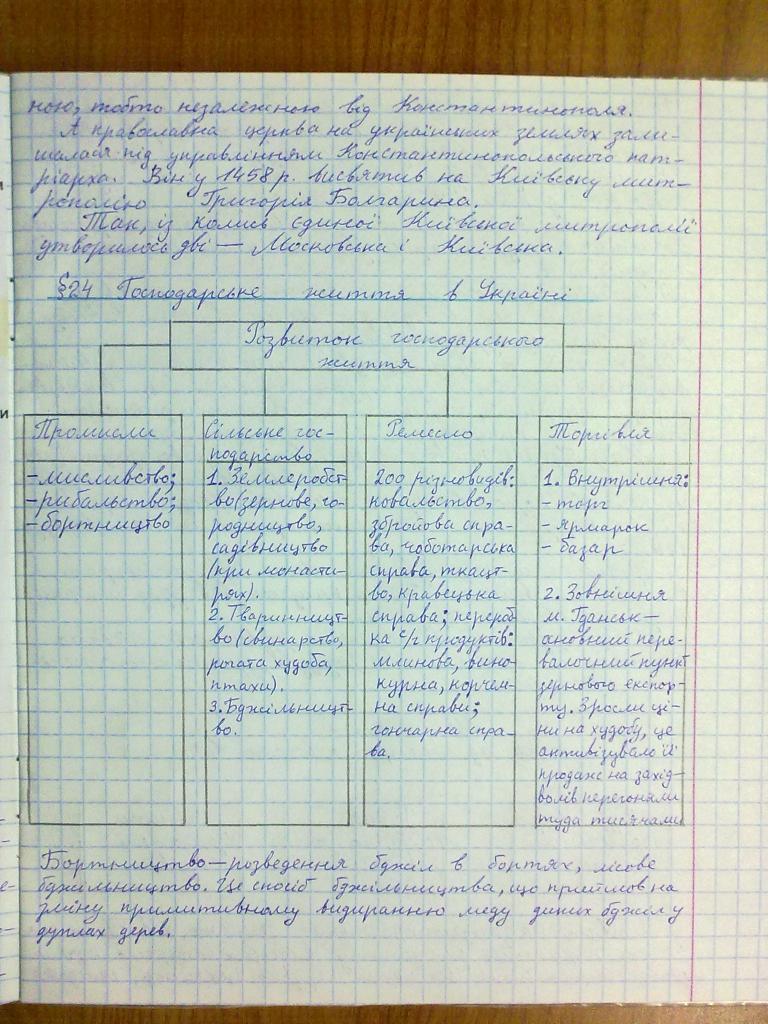 ною, тобто незалежною від Константинополя.
А православна церква на українських землях зали-
шалася під управлінням Константинопольського пат-
ріарха. Він у 1458 р. висвятив на Київську мит-
рополію Григорія Болгарина.
Так, із колись єдиної Київської митрополії
утворилось дві — Московська і Київська.
§24 Господарське життя в Україні
Розвиток господарського
життя
Промисли
- мисливство;
- рибальство;
- бортництво
Сільське гос-
подарство
1. Землеробст-
во (зернове, го-
родництво,
садівництво
(при монасти-
рях).
2. Тваринницт-
во (свинарство,
рогата худоба,
птахи).
3. Бджільницт-
во.
Ремесло
200 різновидів:
ковальство,
збройова спра-
ва, чоботарська
справа, ткацт-
во, кравецька
справа; перероб-
ка с/г продуктів:
млинова, вино-
курна, корчем-
на справи;
гончарна спра-
ва.
Торгівля
1. Внутрішня:
- торг
- ярмарок
- базар
2. Зовнішня
м. Гданськ —
ановний пере-
валочний пункт
зернового експор-
ту. Зросли ці-
ни на худобу, це
активізувало її
продаж на захід —
волів переганяли
туда тисячами
Бортництво — розведення бджіл в бортях, лісове
бджільництво. Це спосіб бджільництва, що прийшов на
зміну примитивному видиранню меду диких бджіл у
дуплах дерев.